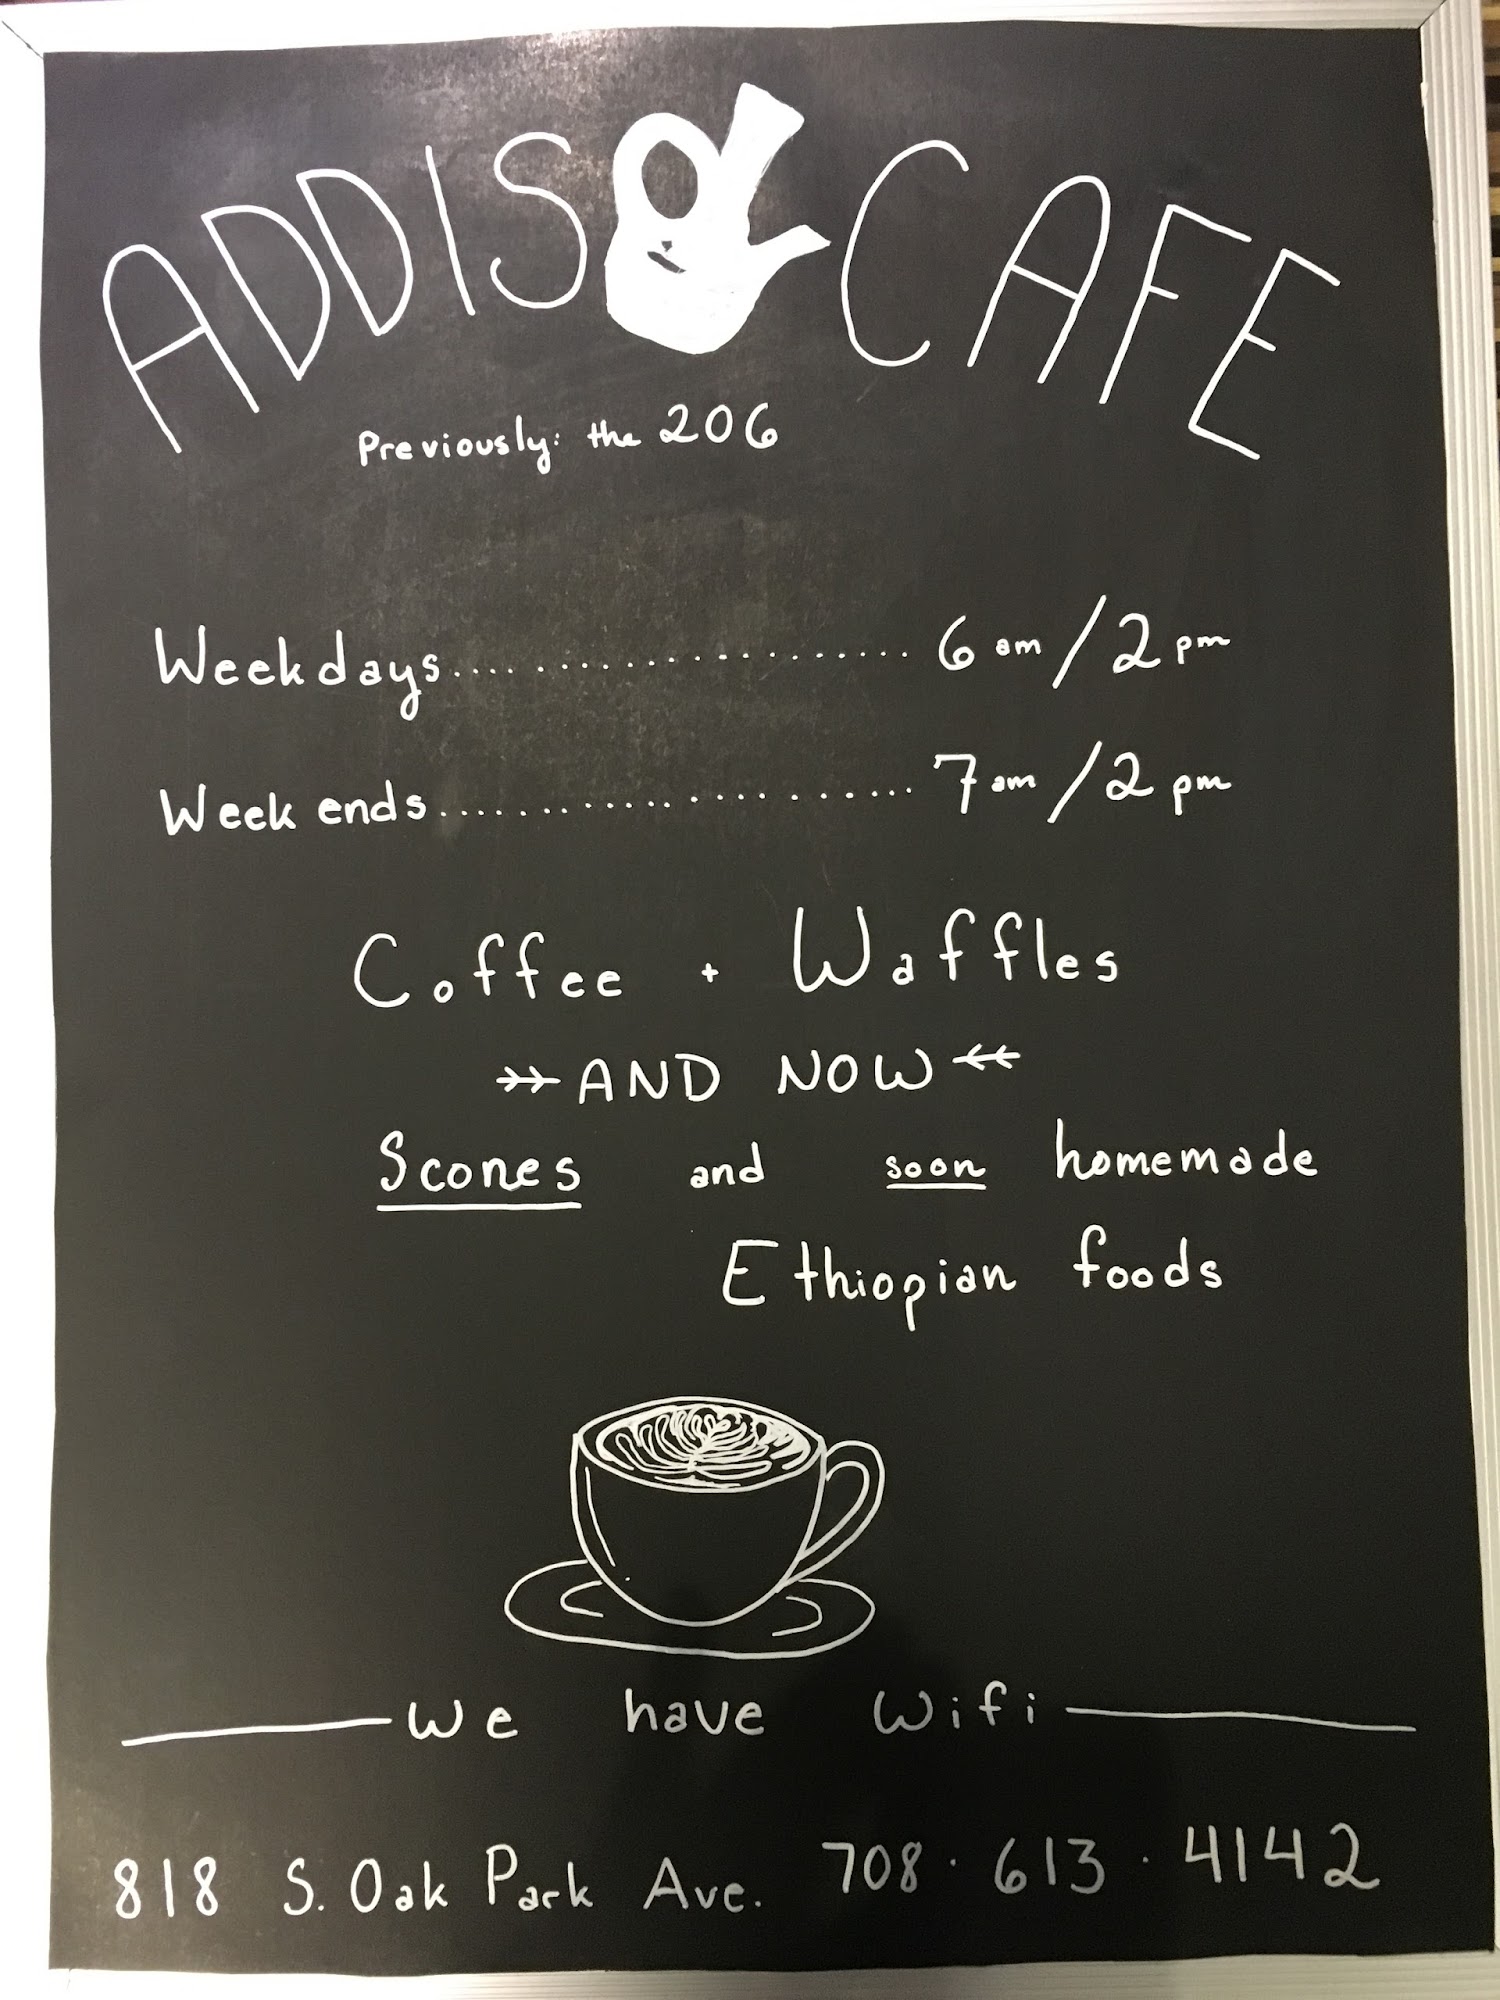 ADDIS CAFE
Previously: the 206
Weekdays...................... 6 am / 2 pm
Week ends...................... 7 am / 2 pm
Coffee + Waffles
AND NOW
Scones and soon homemade
Ethiopian foods
We have Wifi
818 S. Oak Park Ave. 708 · 613 · 4142